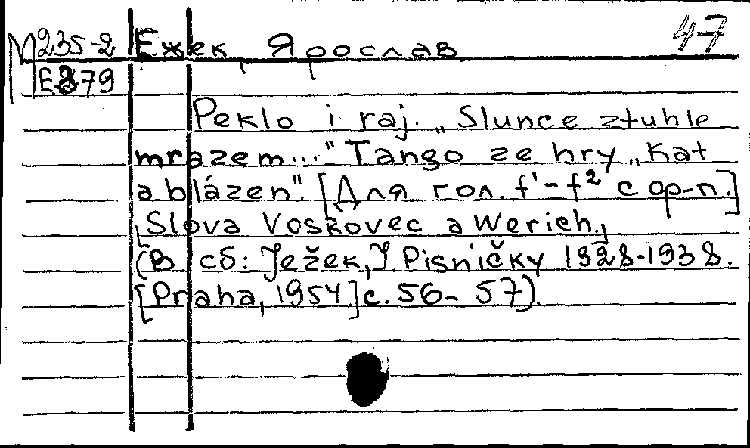 М235-2 Ежек, Ярослав 47
Е279
Peklo i raj. „Slunce ztuhle
mrazem..." Tango ze hry „Kat
a blázen". [Для гол. f¹-f² с ор-п.]
Slova Voskovec a Werich,
(В сб: Ježek, J. Pisničky 1928-1938.
[Praha, 1954] с. 56-57).